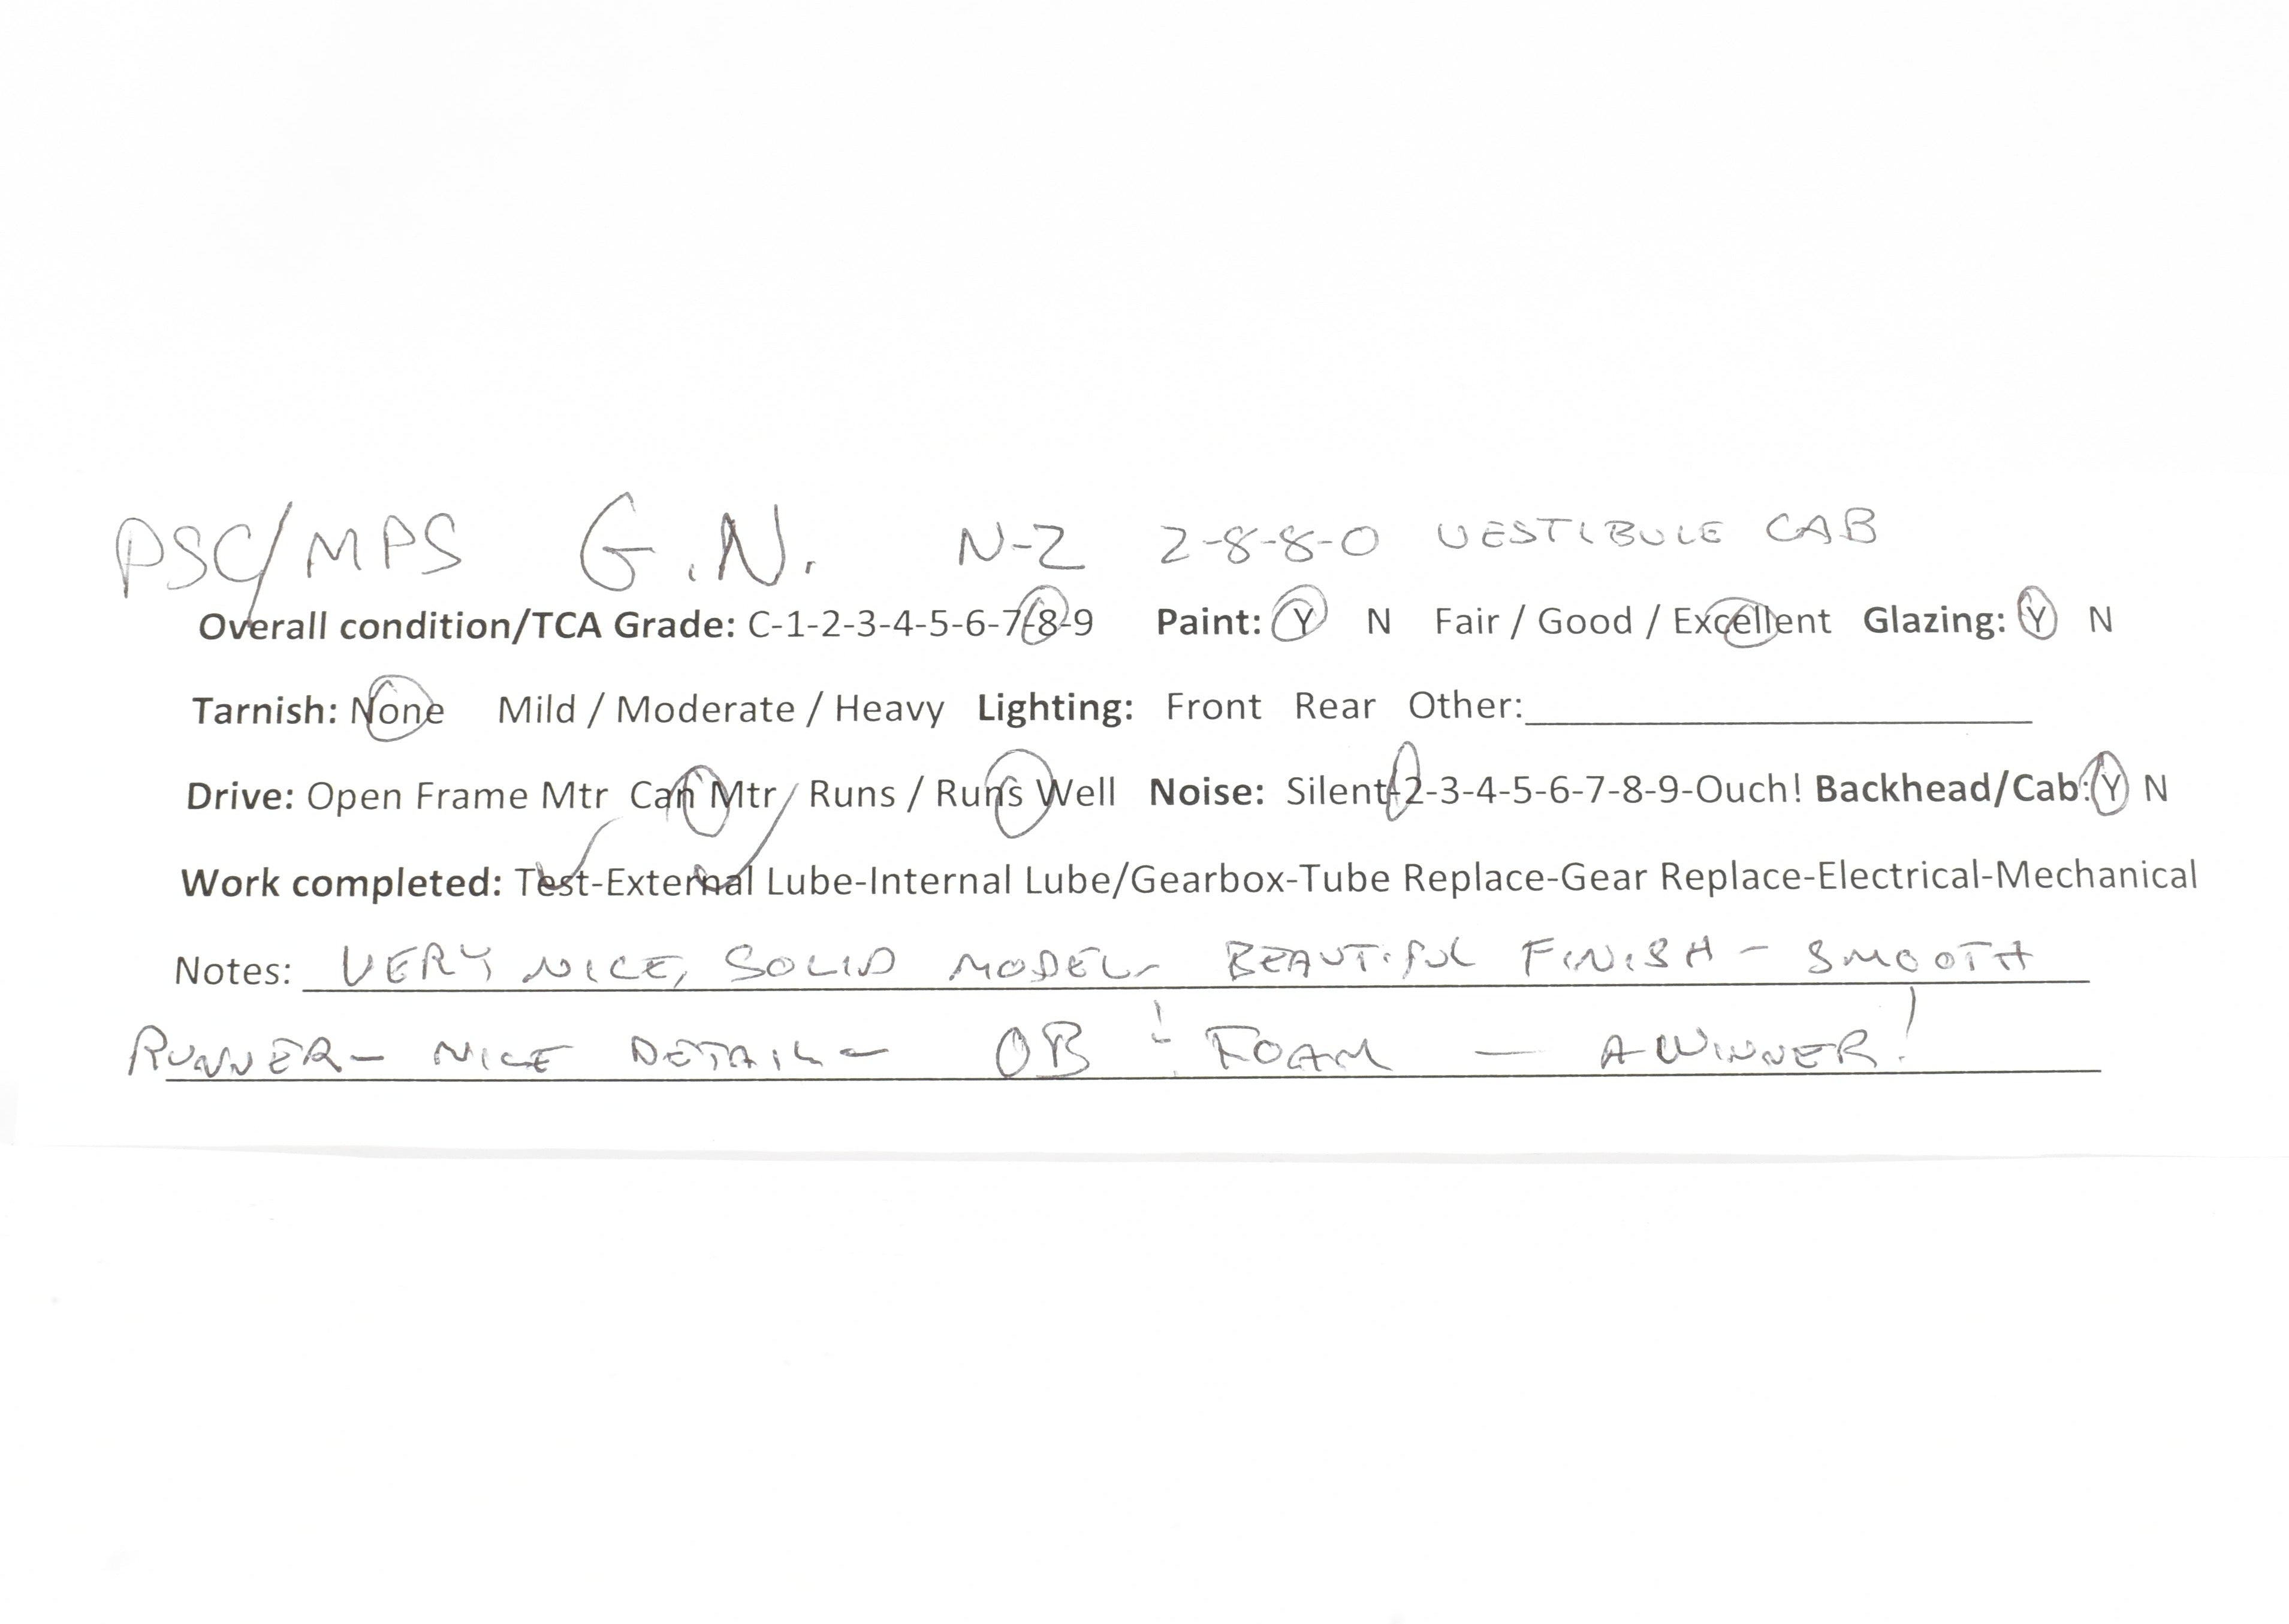 PSC/MPS G.N. N-2 2-8-8-0 VESTIBULE CAB
Overall condition/TCA Grade: C-1-2-3-4-5-6-7-8-9 Paint: Y N Fair / Good / Excellent Glazing: Y N
Tarnish: None Mild / Moderate / Heavy Lighting: Front Rear Other:
Drive: Open Frame Mtr Can Mtr / Runs / Runs Well Noise: Silent-2-3-4-5-6-7-8-9-Ouch! Backhead/Cab: Y N
Work completed: Test-External Lube-Internal Lube/Gearbox-Tube Replace-Gear Replace-Electrical-Mechanical
Notes: VERY NICE, SOLID MODEL- BEAUTIFUL FINISH - SMOOTH
RUNNER- NICE DETAIL- OB & FOAM — A WINNER!